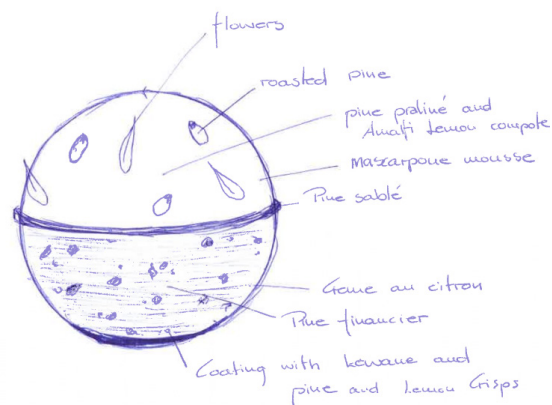 flowers
roasted pine
pine praliné and
Amalfi Lemon compote
mascarpone mousse
Pine sablé
Creme au citron
Pine financier
Coating with and
pine and Lemon Crisps